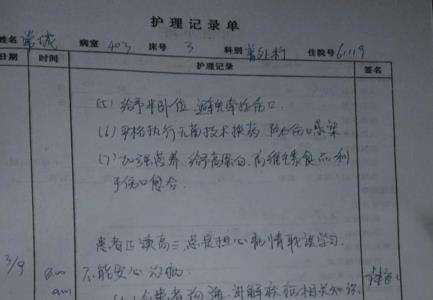 护理记录单
姓名 病室 403 床号 3 科别 普外科 住院号 61119
日期 时间 护理记录 签名
(5) 给予半卧位，避免牵拉伤口
(6) 严格执行无菌技术换药，防止伤口感染
(7) 加强营养，给高蛋白，高维生素食品，利
于伤口愈合。
患者正读高三，总是担心病情耽误学习，
3/9 8:00 不能安心治病
am 与患者沟通，讲解 相关知识